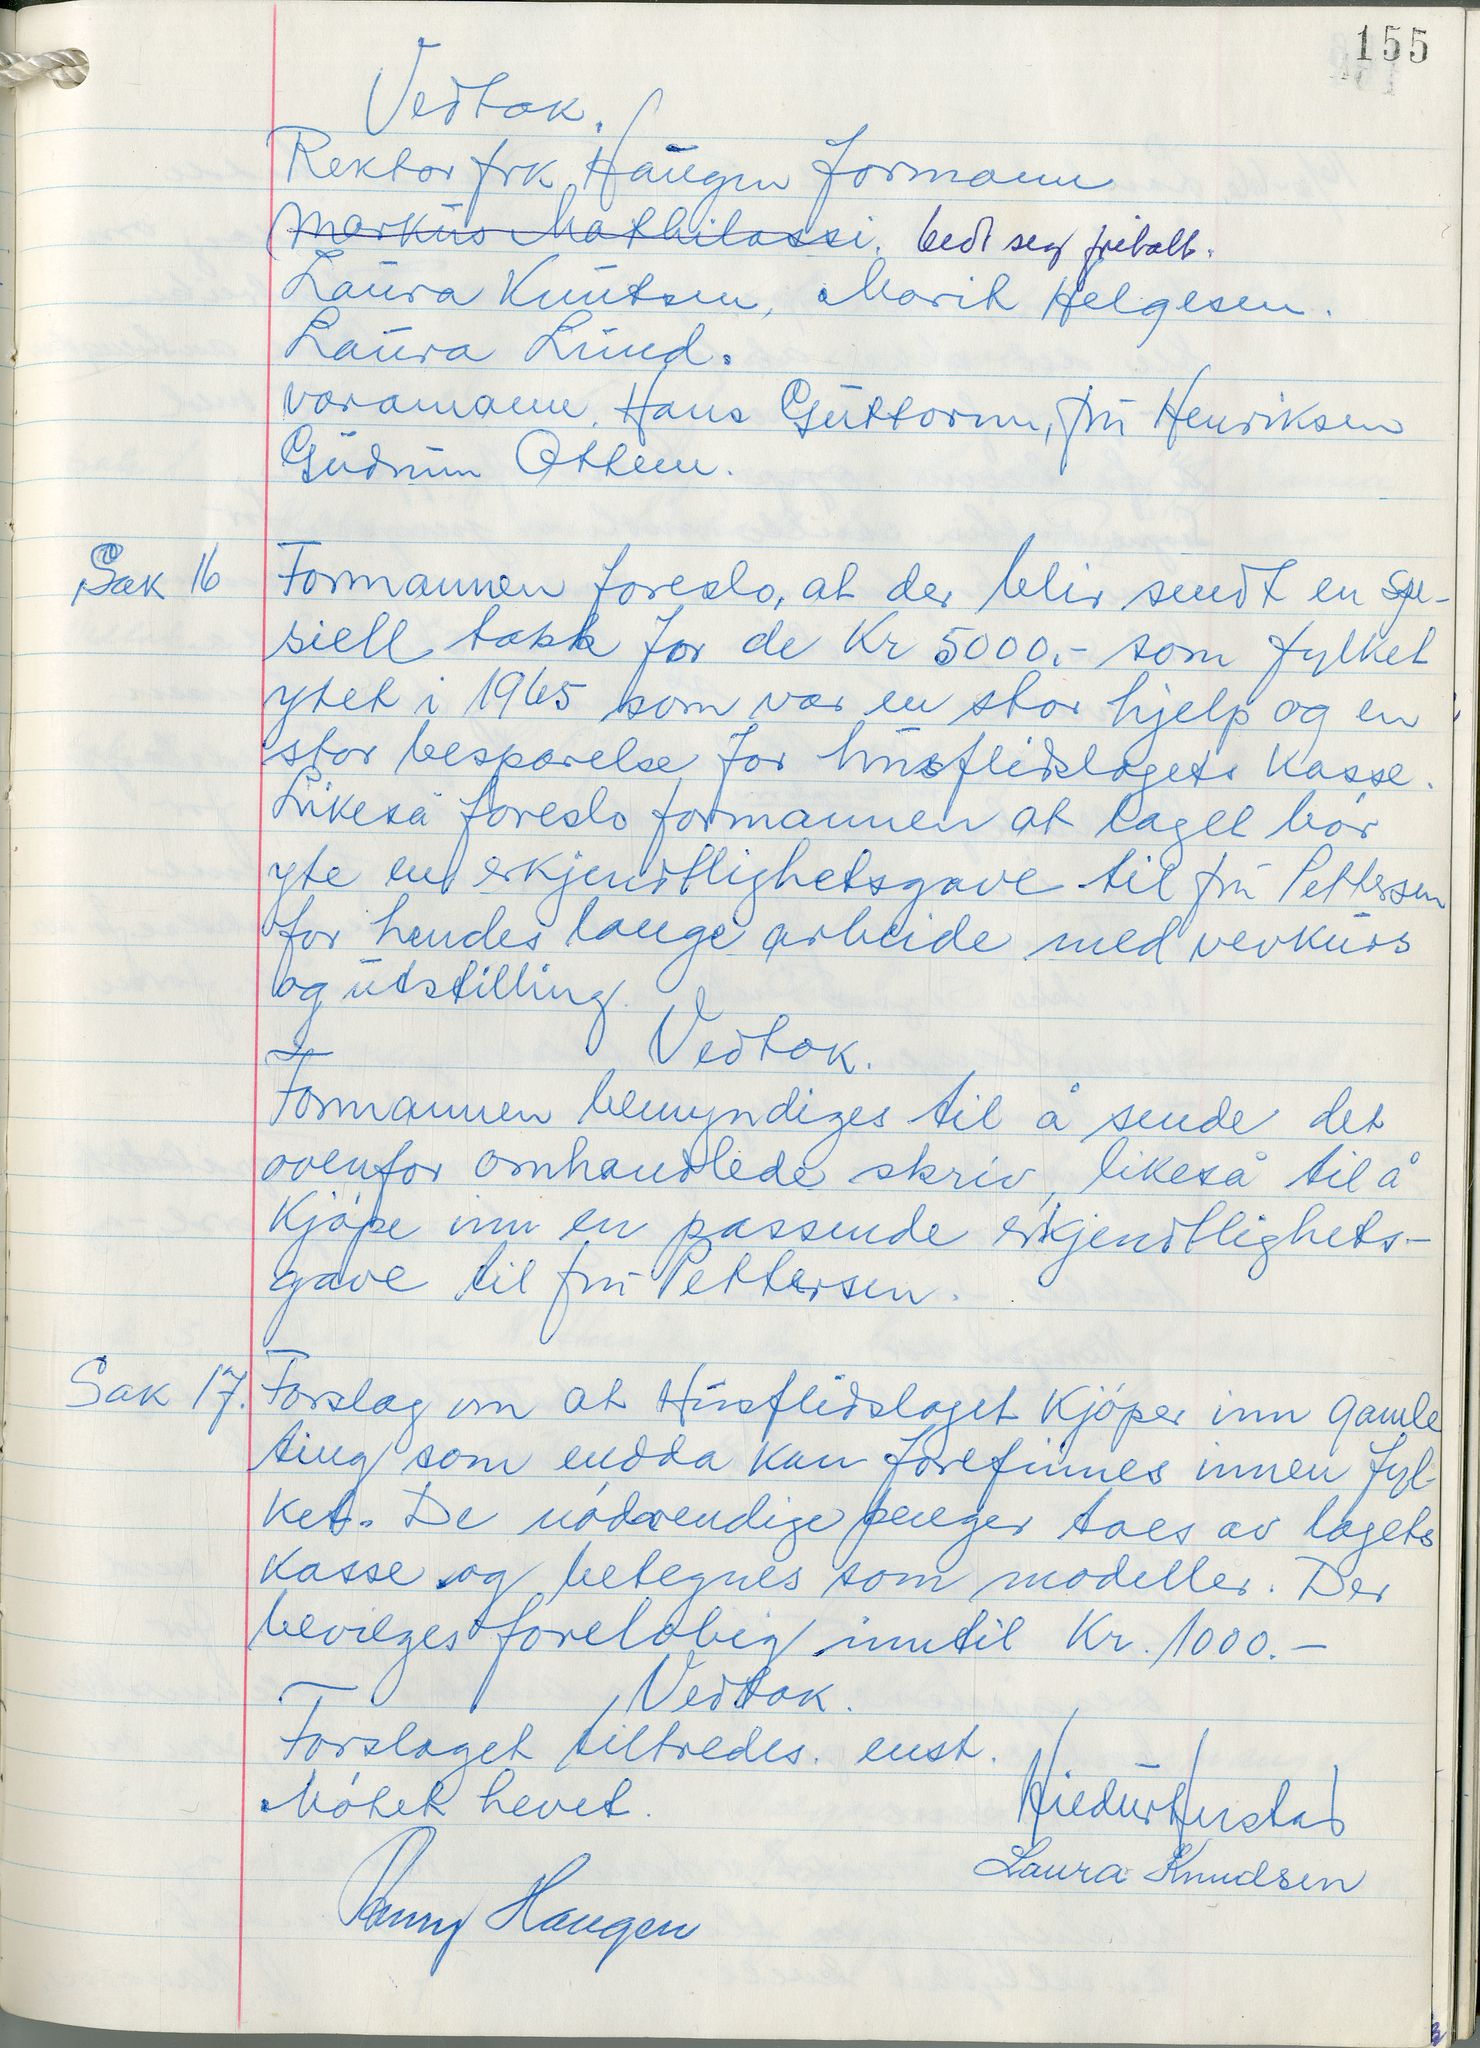 155
Vedtak.
Rektor frk Haugen formann
Markus Mathilassi. bedt seg fritatt.
Laura Knutsen, Marit Helgesen.
Laura Lund.
varamann. Hans Guttorm, fru Henriksen
Gudrun Ottem.
Sak 16 Formannen foreslo, at der blir sendt en spe-
siell takk for de Kr 5000.- som fylket
ytet i 1965 som var en stor hjelp og en
stor besparelse for husflidslagets kasse.
Likeså foreslo formannen at laget bør
yte en erkjendtlighetsgave til fru Pettersen
for hendes lange arbeide med vevkurs
og utstilling.
Vedtak.
Formannen bemyndiges til å sende det
ovenfor omhandlede skriv, likeså til å
kjøpe inn en passende erkjendtlighets-
gave til fru Pettersen.
Sak 17. Forslag om at Husflidslaget kjøper inn gamle
ting som endda kan forefinnes innen fyl-
ket. De nødvendige penger taes av lagets
kasse og betegnes som modeller. Der
bevilges foreløbig inntil Kr. 1000.-
Vedtak.
Forslaget tiltredes. enst.
Møtet hevet.
Laura Knudsen
Haugen